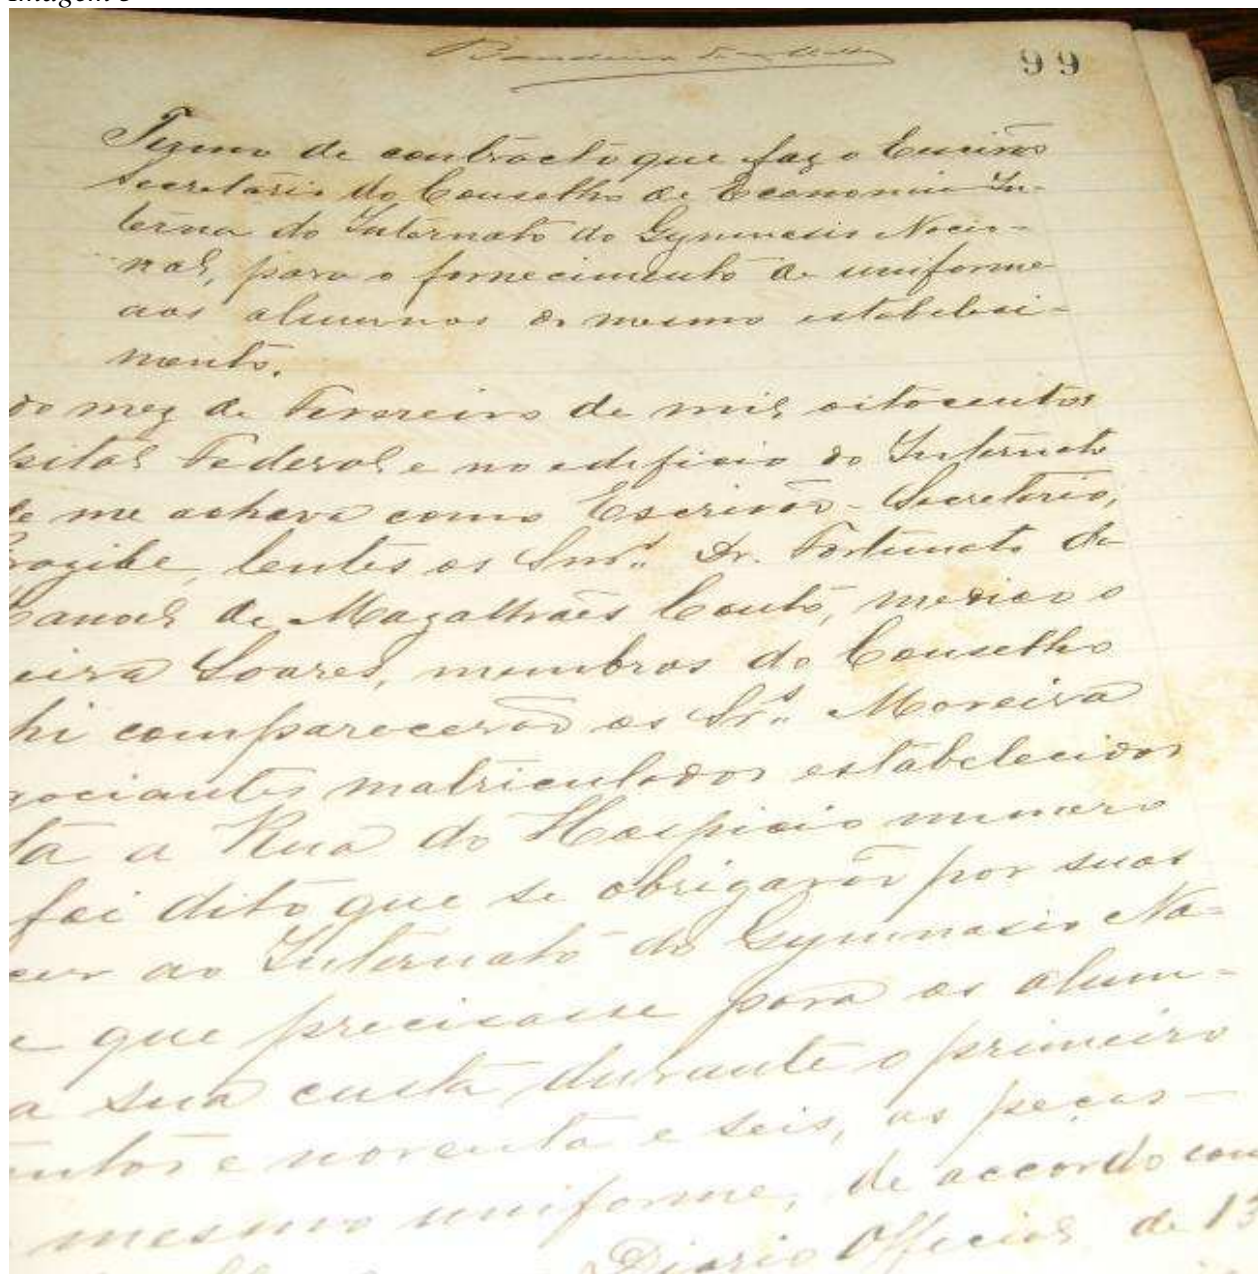 Bandeira de Mello
99
Termo de contracto que faz o Escrivão
Secretario do Conselho de Economia In-
terna do Internato do Gymnasio Nacio-
nal, para o fornecimento de uniforme
aos alumnos do mesmo estabeleci-
mento.
do mez de Fevereiro de mil oitocentos
pital Federal e no edificio do Internato
de me achava como Escrivão-Secretario,
ragibe, lentes os Snrs. Dr. Fortunato da
anoel de Magalhães Couto, medico o
eira Soares, membros do Conselho
hi comparecerão os Srs. Moreira
gociantes matriculados estabelecidos
ta a Rua do Hospicio numero
foi dito que se obrigavão por suas
cer ao Internato do Gymnasio Na-
e que precisasse para os alum-
a sua custa durante o primeiro
entos e noventa e seis, as peças
mesmo uniforme, de accordo com
Diario Official de 13